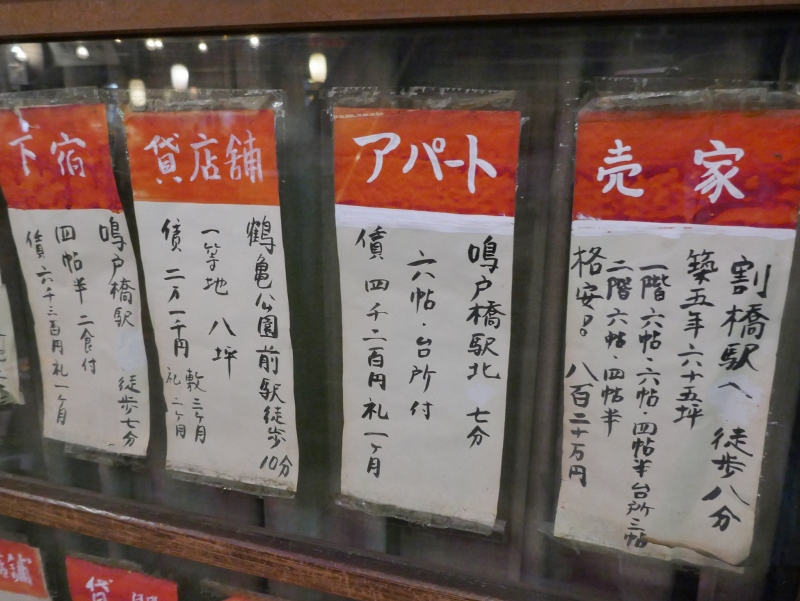 売家
割橋駅へ 徒歩八分
築五年 六十五坪
一階 六帖・六帖・四帖半台所三帖
二階 六帖・四帖半
格安!! 八百二十万円
アパート
鳴戸橋駅北 七分
六帖・台所付
債 四千二百円 礼一ヶ月
貸店舗
鶴亀公園前駅徒歩10分
一等地 八坪
債 二万一千円 敷三ヶ月
礼二ヶ月
下宿
鳴戸橋駅 徒歩七分
四帖半 二食付
債 六千三百円 礼一ヶ月
店舗
貸